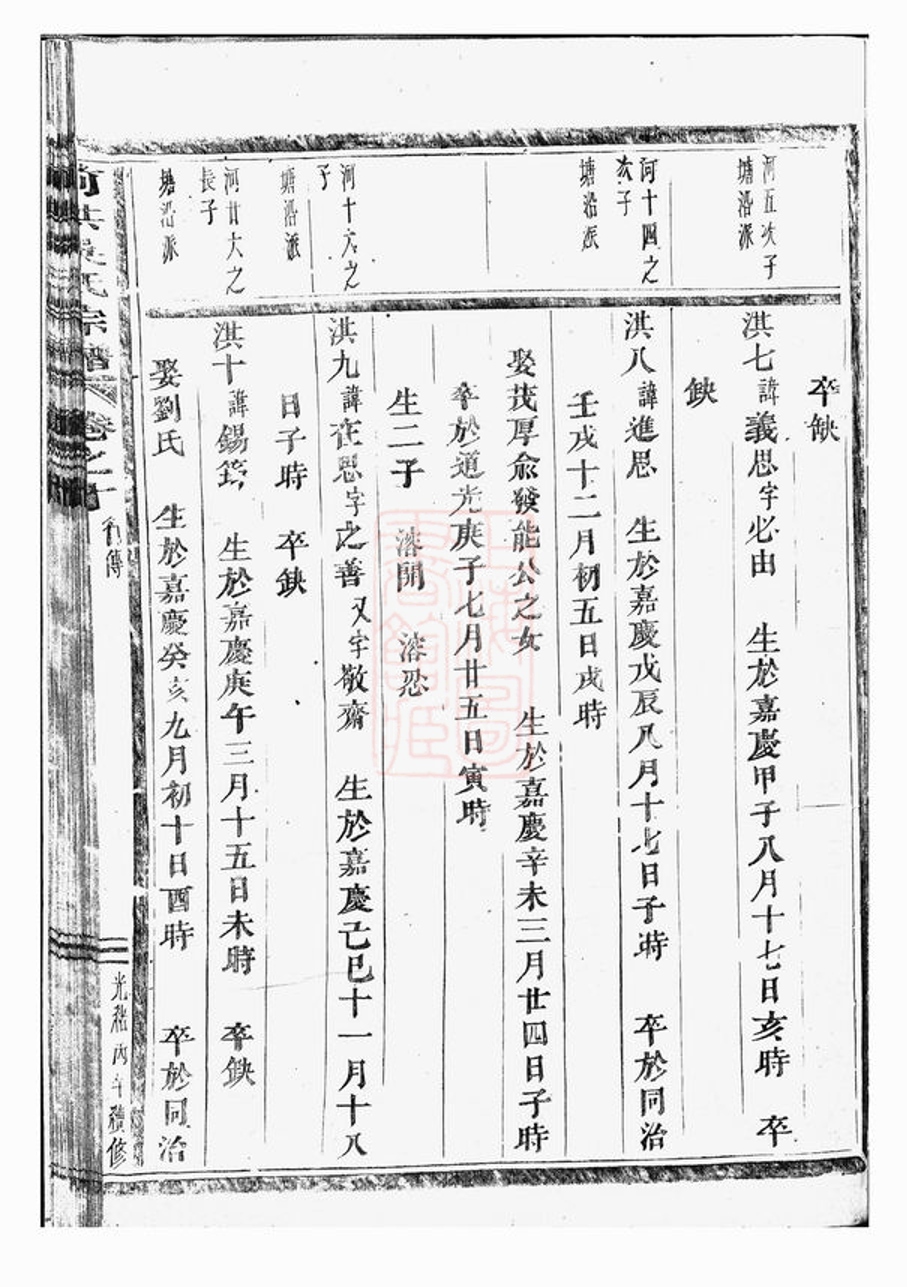 卒缺
河五次子
塘沿派
洪七諱義思字必由 生於嘉慶甲子八月十七日亥時 卒
缺
河十四之
次子
塘沿派
洪八諱進思 生於嘉慶戊辰八月十七日子時 卒於同治
壬戌十二月初五日戌時
娶茂厚俞發能公之女 生於嘉慶辛未三月廿四日子時
卒於道光庚子七月廿五日寅時
生二子 溶開 溶恐
河十六之
子
塘沿派
洪九諱在思字迩善又字敬齋 生於嘉慶己巳十一月十八
日子時 卒缺
河廿大之
長子
塘沿派
洪十諱錫筠 生於嘉慶庚午三月十五日未時 卒缺
娶劉氏 生於嘉慶癸亥九月初十日酉時 卒於同治
吳氏宗譜 卷之十 行傳 光緒丙午續修